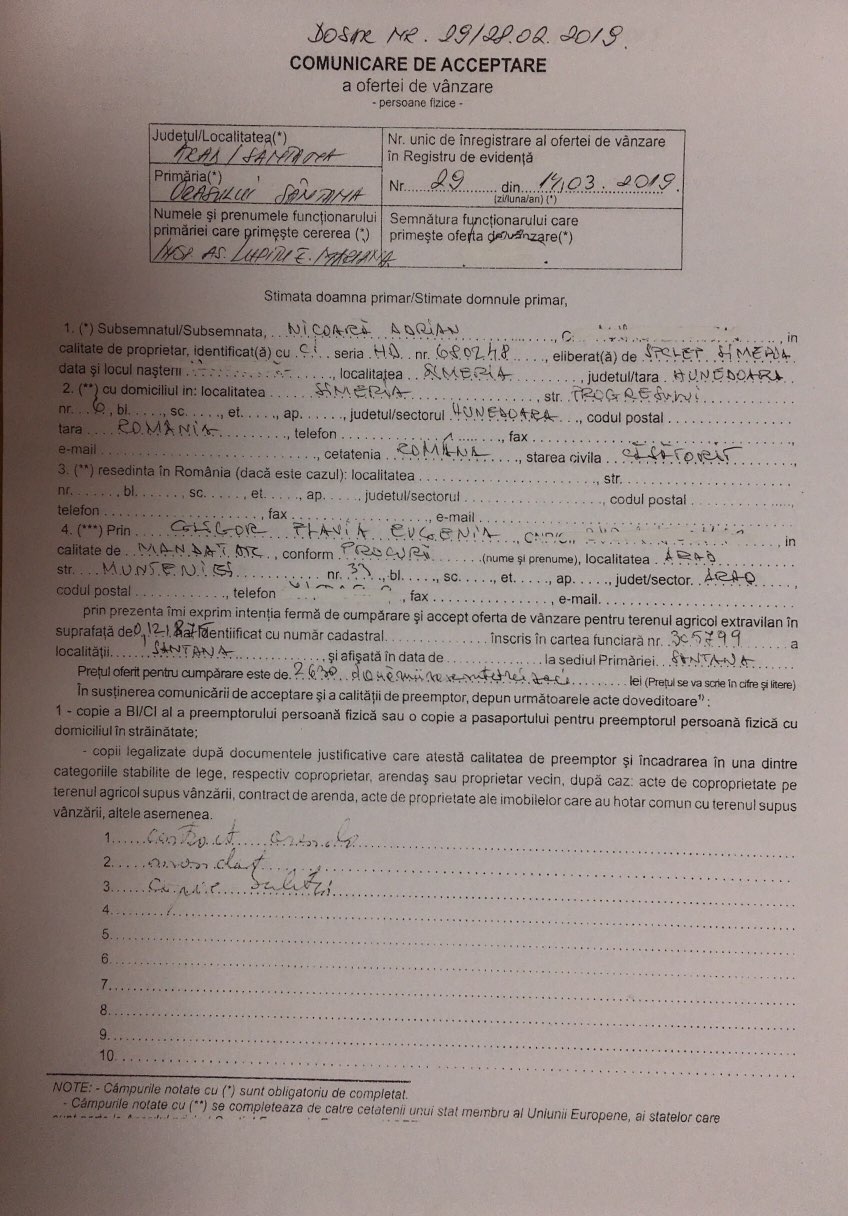 DOSAR NR. 29/28.02.2019.
COMUNICARE DE ACCEPTARE
a ofertei de vânzare
- persoane fizice -
Județul/Localitatea(*)
ARAD / SANTANA
Primăria(*)
ORASULUI SÂNTANA
Numele și prenumele funcționarului
primăriei care primește cererea (*)
INSP. AS. LUPITU E. MARIANA
Nr. unic de înregistrare al ofertei de vânzare
în Registru de evidență
Nr. 29 din 14.03.2019.
(zi/luna/an) (*)
Semnătura funcționarului care
primește oferta de vânzare(*)
Stimata doamna primar/Stimate domnule primar,
1. (*) Subsemnatul/Subsemnata, NICOARĂ ADRIAN, C, in
calitate de proprietar, identificat(ă) cu CI seria HD nr. 680248, eliberat(ă) de SPCLEP SIMERIA
data și locul nașterii, localitatea SIMERIA, judetul/tara HUNEDOARA
2. (**) cu domiciliul in: localitatea SIMERIA, str. PROGRESULUI
nr. 6, bl. , sc. , et. , ap. , judetul/sectorul HUNEDOARA, codul postal
tara ROMÂNIA, telefon , fax ,
e-mail , cetatenia ROMÂNĂ, starea civila CĂSĂTORIT,
3. (**) resedinta în România (dacă este cazul): localitatea , str.
nr. , bl. , sc. , et. , ap. , judetul/sectorul , codul postal ,
telefon , fax , e-mail
4. (***) Prin GLIGOR FLAVIA EUGENIA, in
calitate de MANDATAR, conform PROCURĂ (nume și prenume), localitatea ARAD
str. MUNTENIEI nr. 39, bl. , sc. , et. , ap. , judet/sector. ARAD,
codul postal , telefon , fax , e-mail.
prin prezenta îmi exprim intenția fermă de cumpărare și accept oferta de vânzare pentru terenul agricol extravilan în
suprafață de 0,1218 identificat cu număr cadastral înscris în cartea funciară nr. 305799 a
localității SANTANA, și afișată în data de la sediul Primăriei SANTANA
Prețul oferit pentru cumpărare este de 2630 lei (Prețul se va scrie în cifre și litere)
În susținerea comunicării de acceptare și a calității de preemptor, depun următoarele acte doveditoare¹⁾ :
1 - copie a BI/CI al a preemptorului persoană fizică sau o copie a pasaportului pentru preemptorul persoană fizică cu
domiciliul în străinătate;
- copii legalizate după documentele justificative care atestă calitatea de preemptor și încadrarea în una dintre
categoriile stabilite de lege, respectiv coproprietar, arendaș sau proprietar vecin, după caz: acte de coproprietate pe
terenul agricol supus vânzării, contract de arenda, acte de proprietate ale imobilelor care au hotar comun cu terenul supus
vânzării, altele asemenea.
1. contract arenda
2. mandat
3. Copie
4.
5.
6.
7.
8.
9.
10.
NOTE: - Câmpurile notate cu (*) sunt obligatoriu de completat.
- Câmpurile notate cu (**) se completeaza de catre cetatenii unui stat membru al Uniunii Europene, ai statelor care